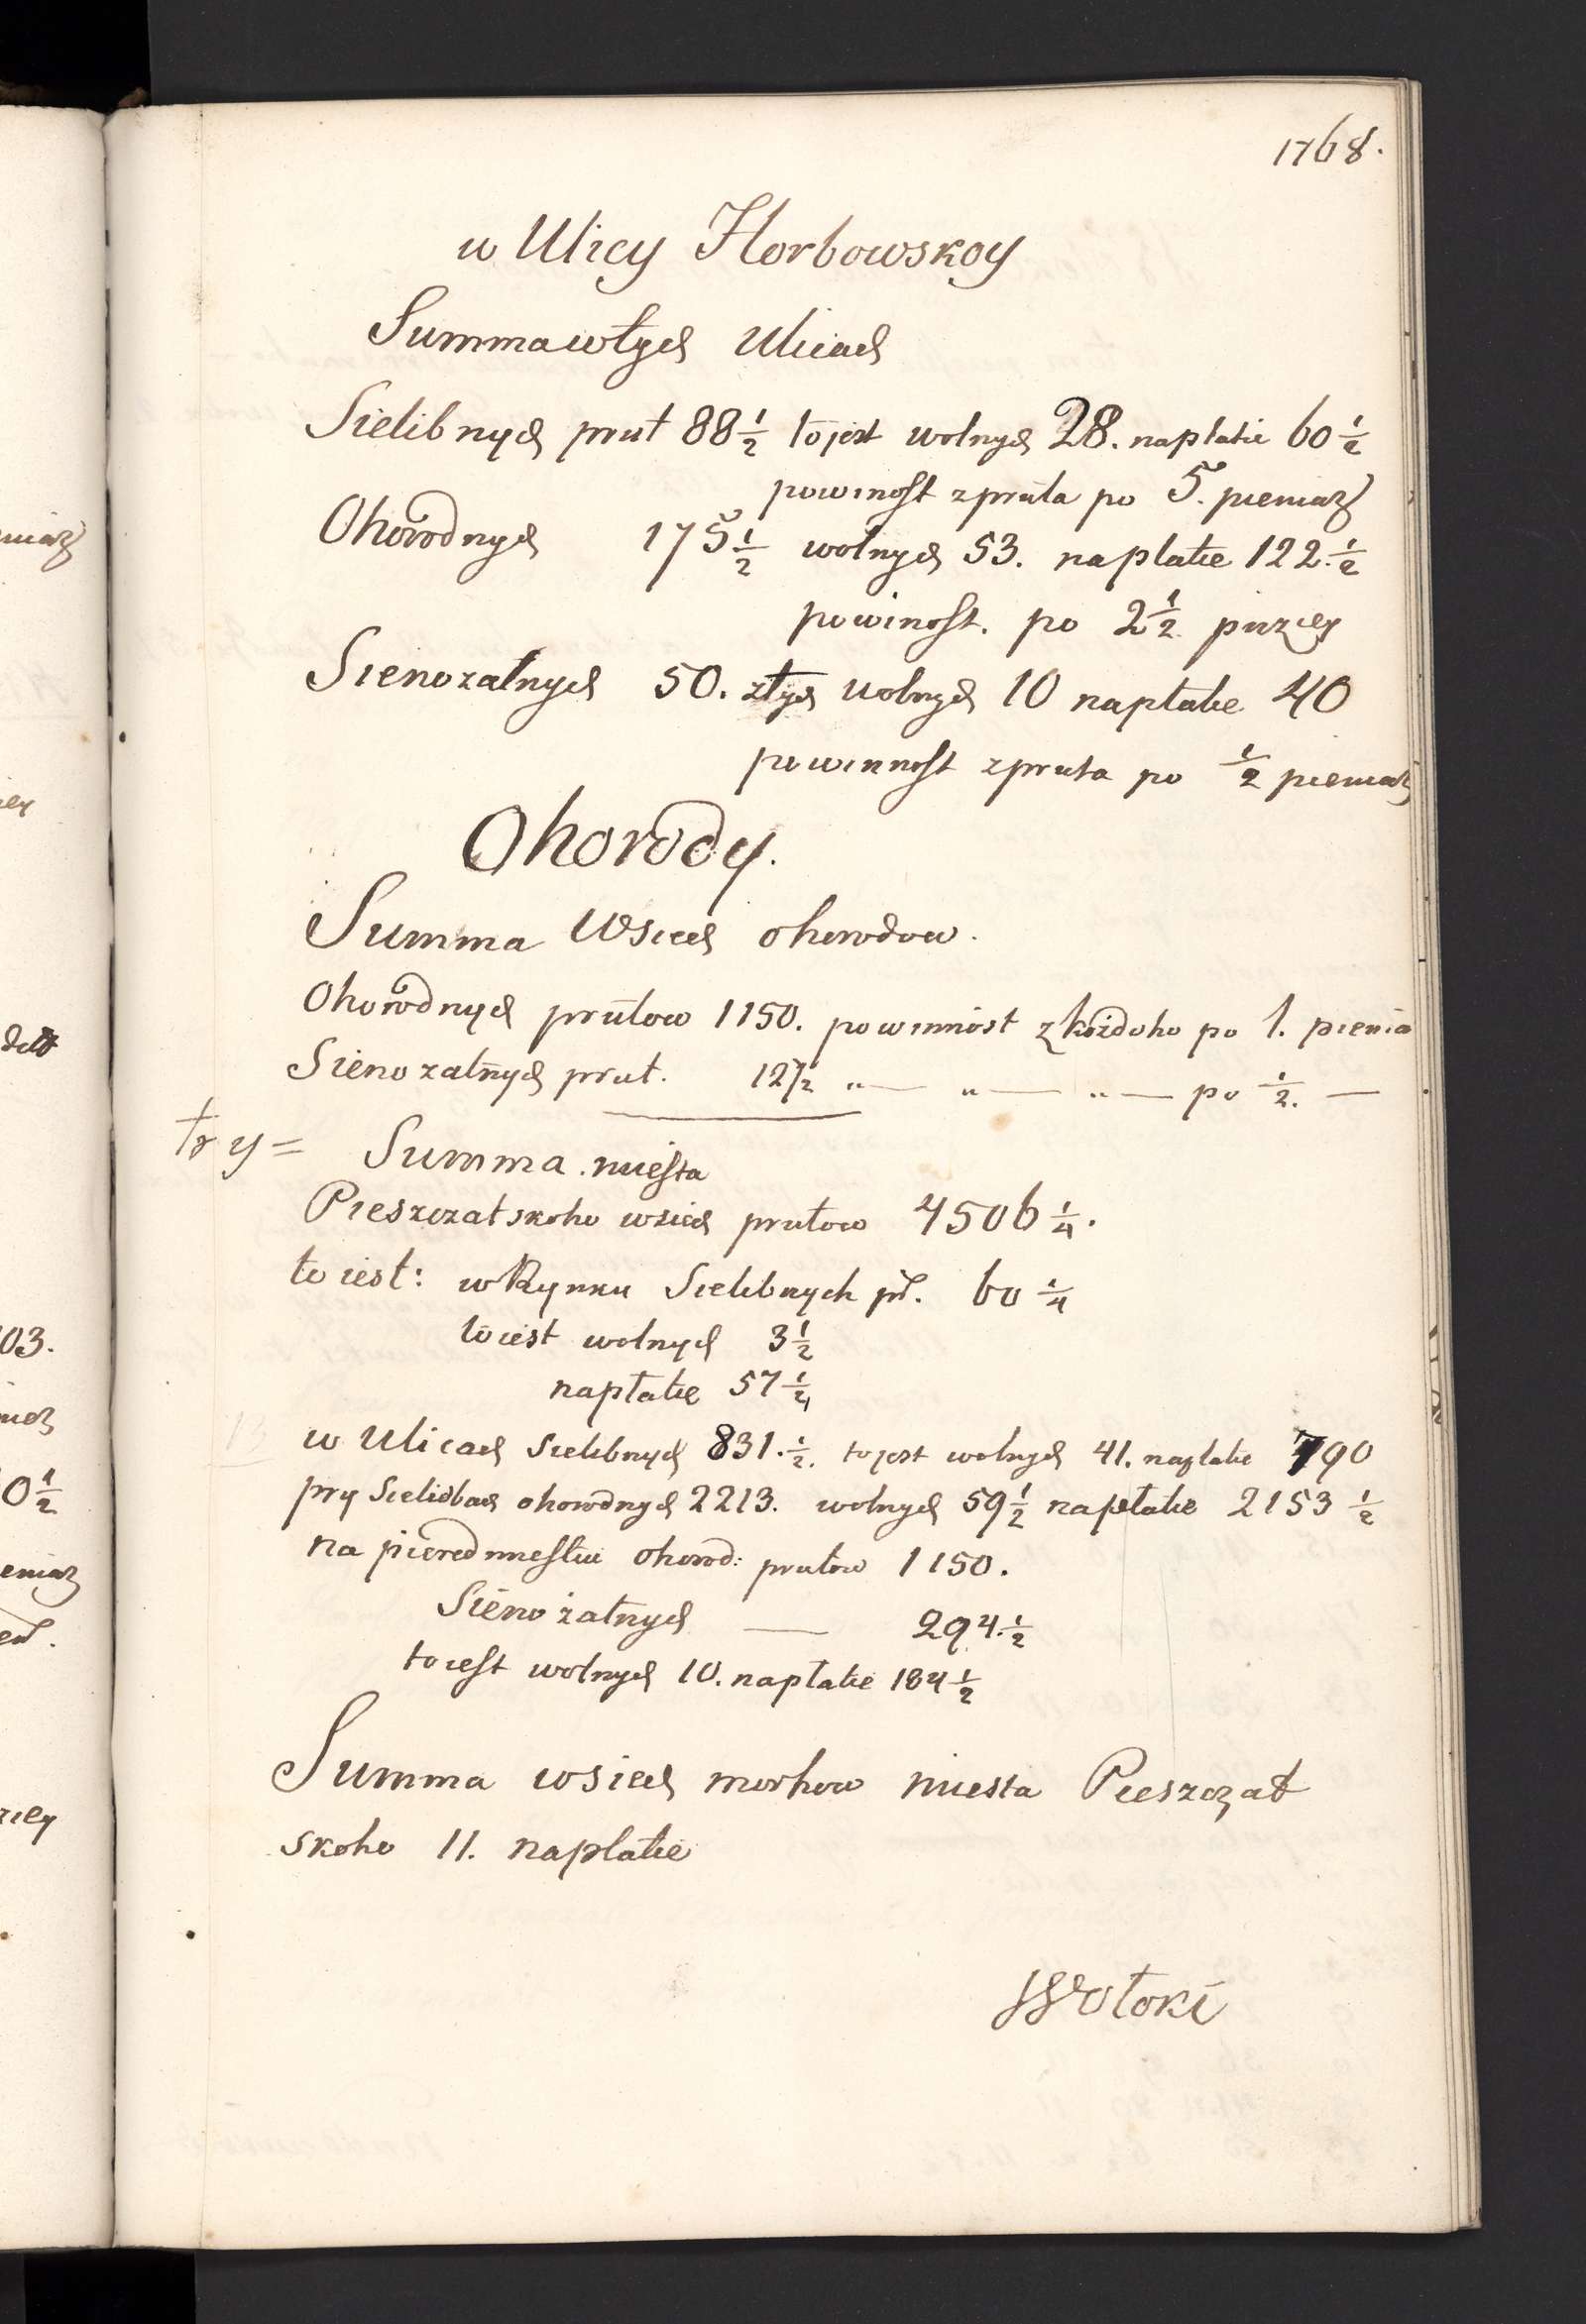 1768.
w Ulicy Horbowskoy
Summa w tych Ulicach
Sielibnych prut 88 1/2 to jest wolnych 28. na płatie 60 1/2
powinost z pruta po 5. pieniaz
Ohorodnych 175 1/2 wolnych 53. na platie 122 1/2
powinost. po 2 1/2
Sienozatnych 50. z tych wolnych 10 na płatie 40
powinnost z pruta po 1/2 pieniaz
Ohorody.
Summa Wsiech ohorodow.
Ohorodnych prutow 1150. powinnost z kożdoho po 1. pienia
Sienozatnych prut. 127 1/2 „— „— „— po 1/2. —
try = Summa miesta
Pieszczatskoho wsiech prutow 4506 1/4.
to iest: w Rynku Sielibnych pr. 60 1/4
to iest wolnych 3 1/2
na płatie 57 1/4
w Ulicach Sielibnych 831. 1/2. to jest wolnych 41. na platie 790
pry Sielidbach ohorodnych 2213. wolnych 59 1/2 na płatie 2153 1/2
na pieredmiestiu ohorod: prutow 1150.
Sienożatnych — 294. 1/2
to iest wolnych 10. na płatie 184 1/2
Summa wsiech morhow miesta Pieszczat
skoho 11. na platie
Wołoki